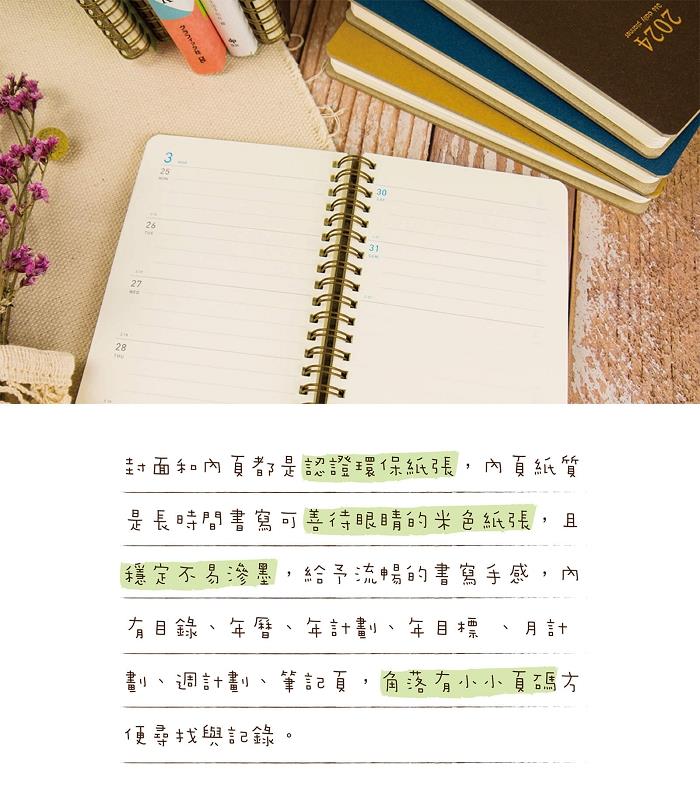 2024
365 daily planner
3
25
MON
26
TUE
27
WED
28
THU
30
SAT
31
SUN
封面和內頁都是認證環保紙張，內頁紙質
是長時間書寫可善待眼睛的米色紙張，且
穩定不易滲墨，給予流暢的書寫手感，內
有目錄、年曆、年計劃、年目標 、月計
劃、週計劃、筆記頁，角落有小小頁碼方
便尋找與記錄。